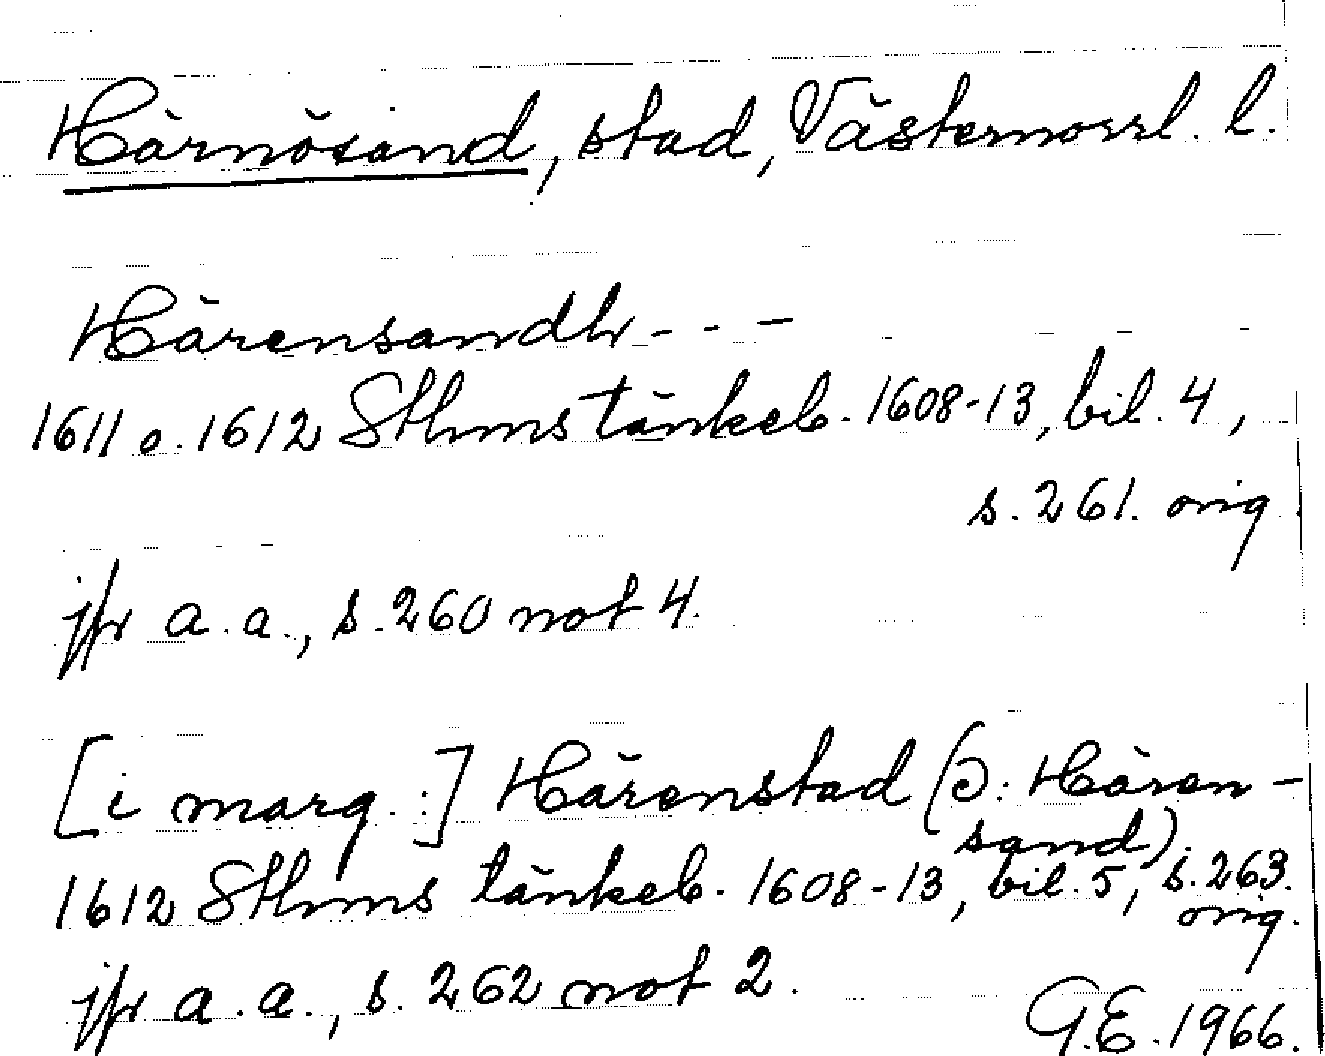 Härnösand, stad, Västernorrl. l.
Härensandh - - -
1611 o. 1612 Sthms tänkeb. 1608-13, bil. 4,
s. 261. orig.
jfr a. a., s. 260 not 4.
[i marg.:] Härenstad (ɔ: Hären-
sand).
1612 Sthms tänkeb. 1608-13, bil. 5, s. 263.
orig.
jfr a. a., s. 262 not 2.
G.E. 1966.